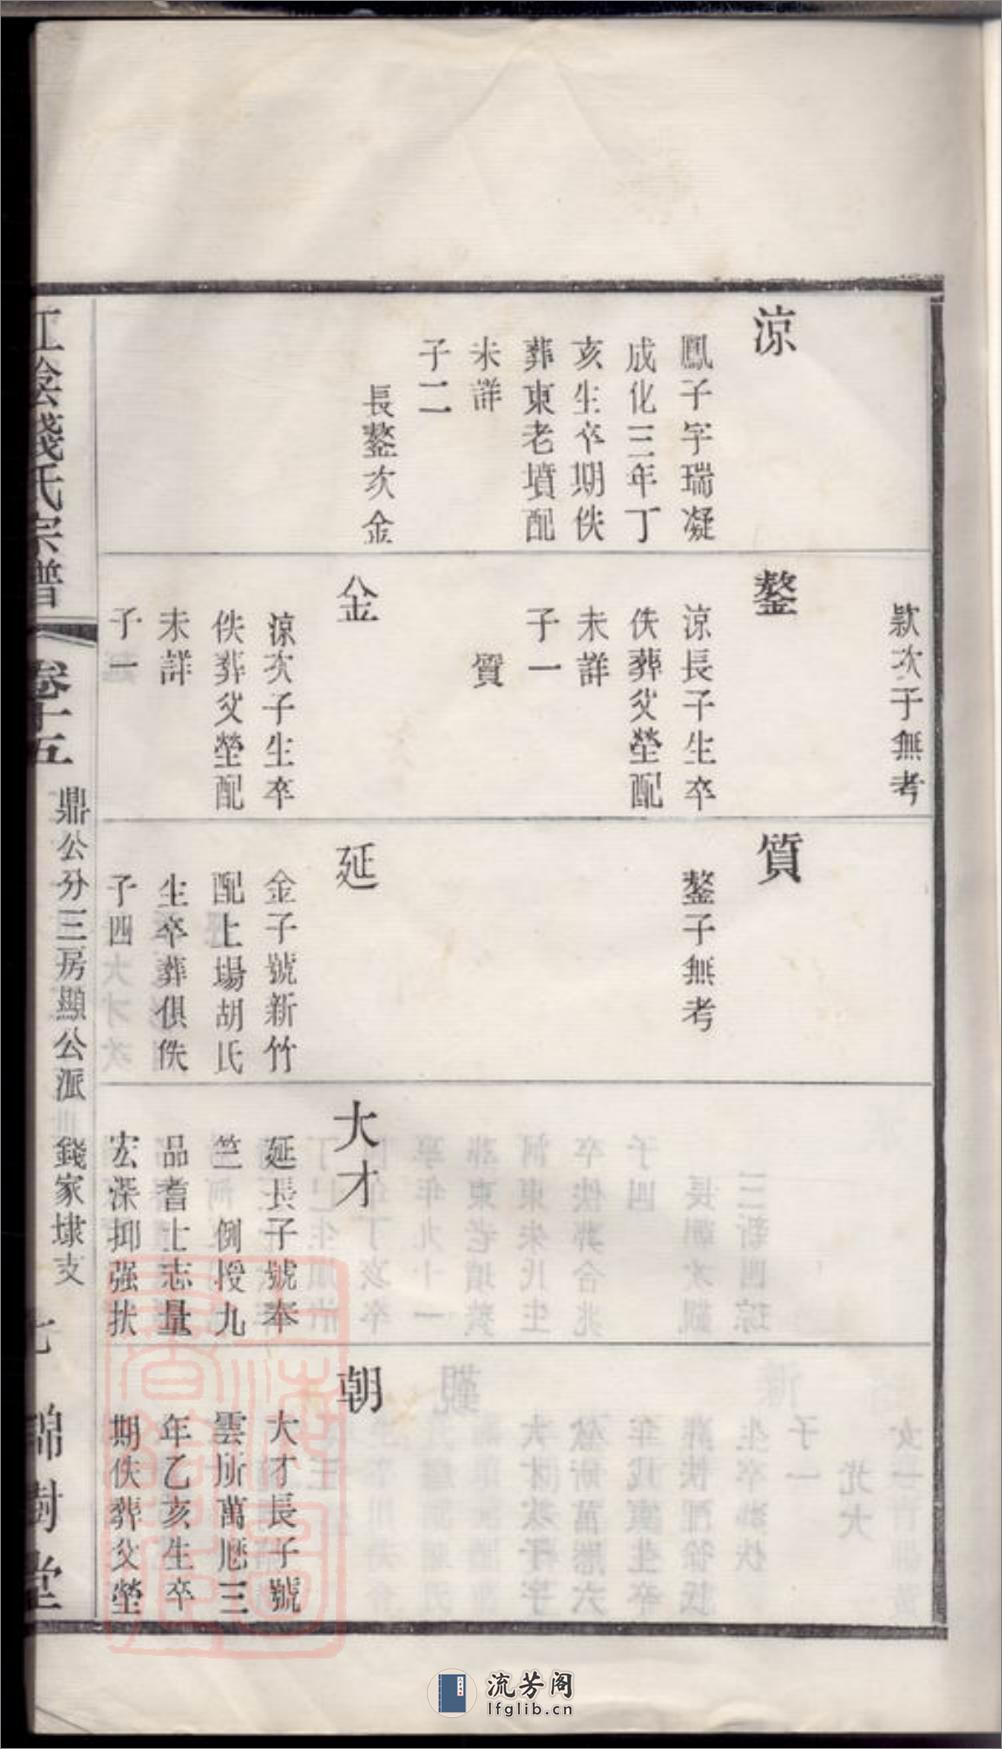 涼
鳳子字瑞凝
成化三年丁
亥生卒期佚
葬東老墳配
未詳
子二
長鏊次金
欵次子無考
鏊
涼長子生卒
佚葬父塋配
未詳
子一
質
金
涼次子生卒
佚葬父塋配
未詳
子一
質
鏊子無考
延
金子號新竹
配上場胡氏
生卒葬俱佚
子四
大才
延長子號奉
竺 例授九
品耆士志量
宏深抑强扶
朝
大才長子號
雲所萬厯三
年乙亥生卒
期佚葬父塋
江陰錢氏宗譜
卷十五
鼎公分三房顯公派 錢家埭支
七
錦樹堂
流芳阁
lfglib.cn